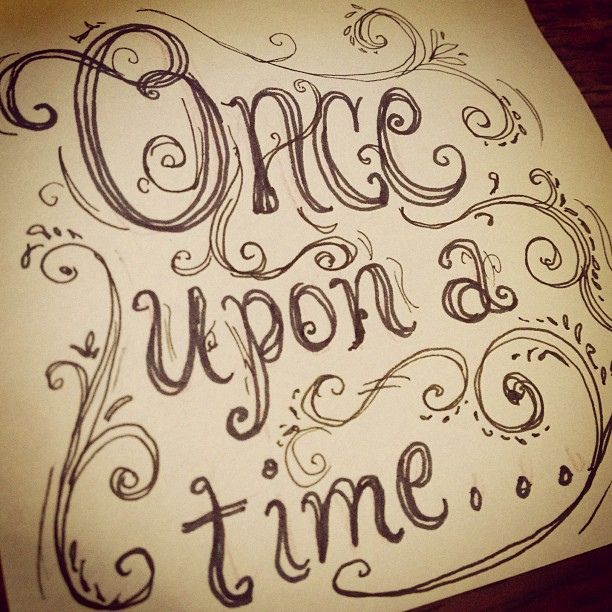 Once
upon a
time...